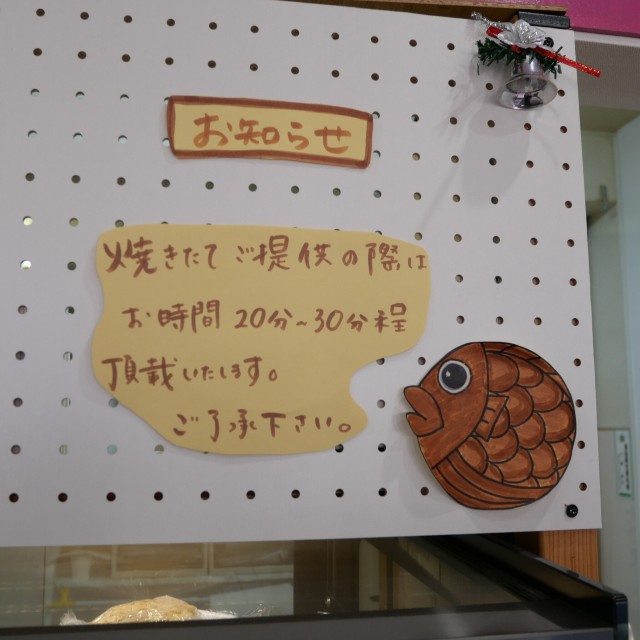 お知らせ
焼きたてご提供の際は
お時間20分~30分程
頂戴いたします。
ご了承下さい。